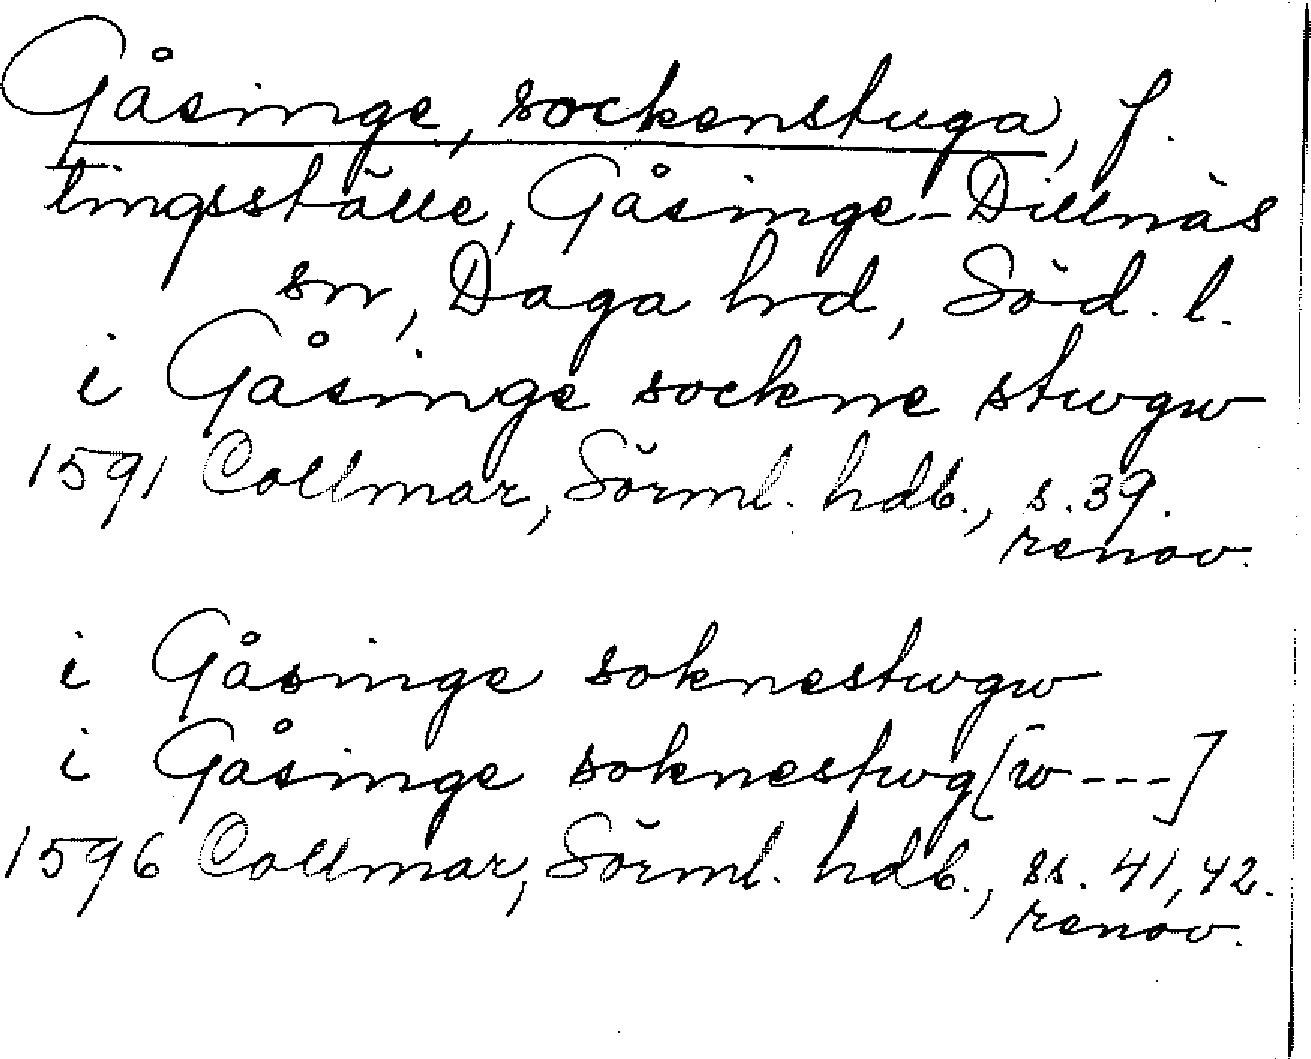 Gåsinge, sockenstuga, f.
tingsställe, Gåsinge-Dillnäs
sn, Daga hrd, Söd. l.
i Gåsinge sockne stwgw
1591 Collmar, Sörml. hdb., s. 39.
renov.
i Gåsinge soknestwgw
i Gåsinge soknestwg[w---]
1596 Collmar, Sörml. hdb., ss. 41, 42.
renov.